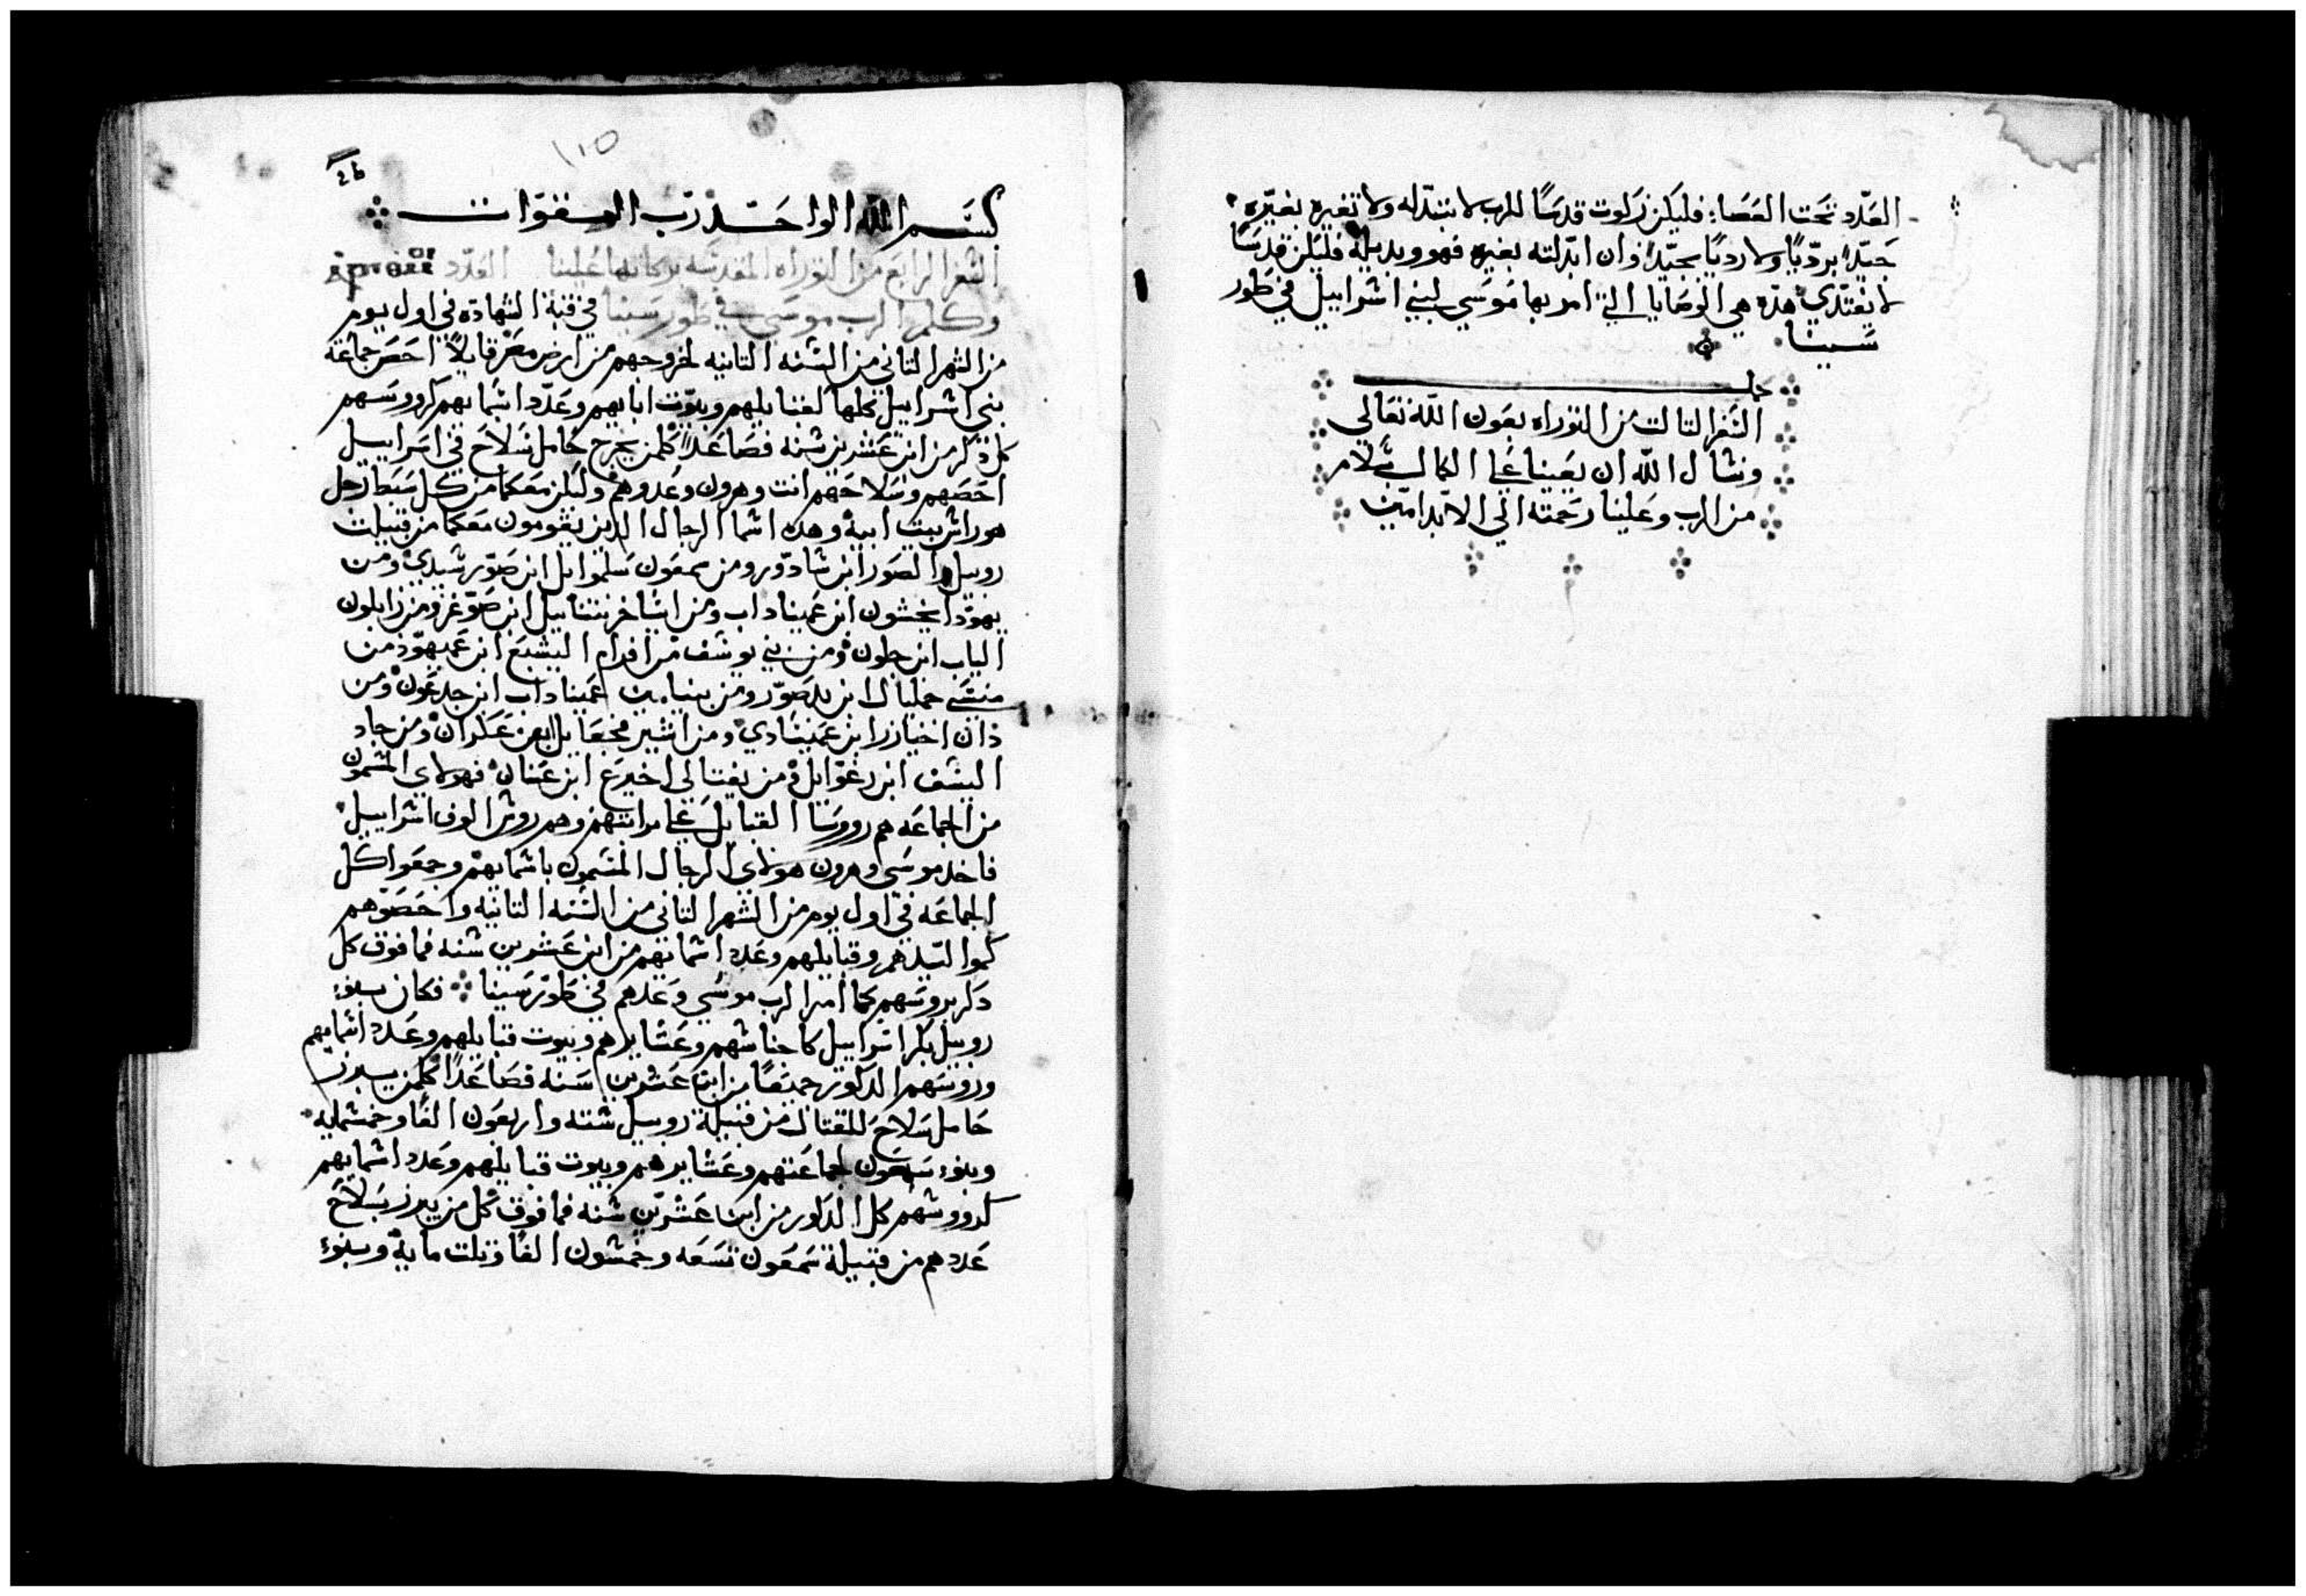 العدد تحت العصا؛ فليكن زكوت قدسًا للرب لا تبتدله ولا تغيره بغيره
جيدًا برديًا ولا رديًا بجيد؛ وان ابدلته بغيره فهو وبديله فليكن قدسًا
لا يفتدي هذه هي الوصايا التي امر بها موسي لبني اشراييل في طور
سينا
كمل
الشفر التالت من التوراه بعون الله تعالى
ونشال الله ان يعيننا علي الكمال بشلام
من الرب وعلينا رحمته الي الابد امين
١١٥
بسم الله الواحد رب القوات
الشفر الرابع من التوراه المقدسه بركاتها علينا العدد
وكلم الرب موسي في طور سينا في قبة الشهاده في اول يوم
من الشهر التاني من الشنه التانيه لخروجهم من ارض مصر قايلًا احصر جماعة
بني اشراييل كلها لقبايلهم وبيوت ابايهم وعدد اشمايهم كروسهم
كل ذكر من ابن عشرين شنه فصاعدًا كلمن يخرج حامل سلاح في اسراييل
احصهم وسلاحهم انت وهرون وعدوهم وليكن معكما من كل سبط رجل
هو راش بيت ابيه وهذه اشما الرجال الدين يقومون معكما من قبيلت
روبيل الصور ابن شادور ومن سمعون سلموايل ابن صور شيدي ومن
يهودا نحشون ابن عميناداب ومن ايشاخر نتناييل ابن صوغر ومن زابلون
الياب ابن حلون ومن بني يوشف من افرام اليشبع ابن عميهود من
منشي حمليال ابن يدصور ومن بنيامين عميناداب ابن جدعون ومن
دان اخيازر ابن عمينادي ومن اشير فجعاييل ابن عكران ومن جاد
اليشف ابن رغوايل ومن يفتالي اخيرع ابن عينان فهولاي المشمون
من الجماعه هم روسا القبايل علي مراتبهم وهم روش الوف اشراييل
فاخد موسي وهرون هولاي الرجال المشمون باشمايهم وجمعوا كل
الجماعه في اول يوم من الشهر التاني من الشنه التانيه واحصوهم
كمواليدهم وقبايلهم وعدد اشمايهم من ابن عشرين شنه فما فوق كل
دكر بروسهم كما امر الرب موسي وعدهم في طور سينا فكان بنو
روبيل بكر اشراييل كاجناشهم وعشايرهم وبيوت قبايلهم وعدد اشمايهم
وروسهم الدكور جميعًا من ابن عشرين سنه فصاعدًا كلمن يبرز
حامل سلاح للقتال من قبيلة روبيل شته واربعون الفًا وخمشمايه
وبنو سمعون لجماعتهم وعشايرهم وبيوت قبايلهم وعدد اشمايهم
كروشهم كل الدكور من ابن عشرين شنه فما فوق كل من يبرز بسلاح
عددهم من قبيلة سمعون تسعه وخمشون الفًا وتلت مايه وبنو